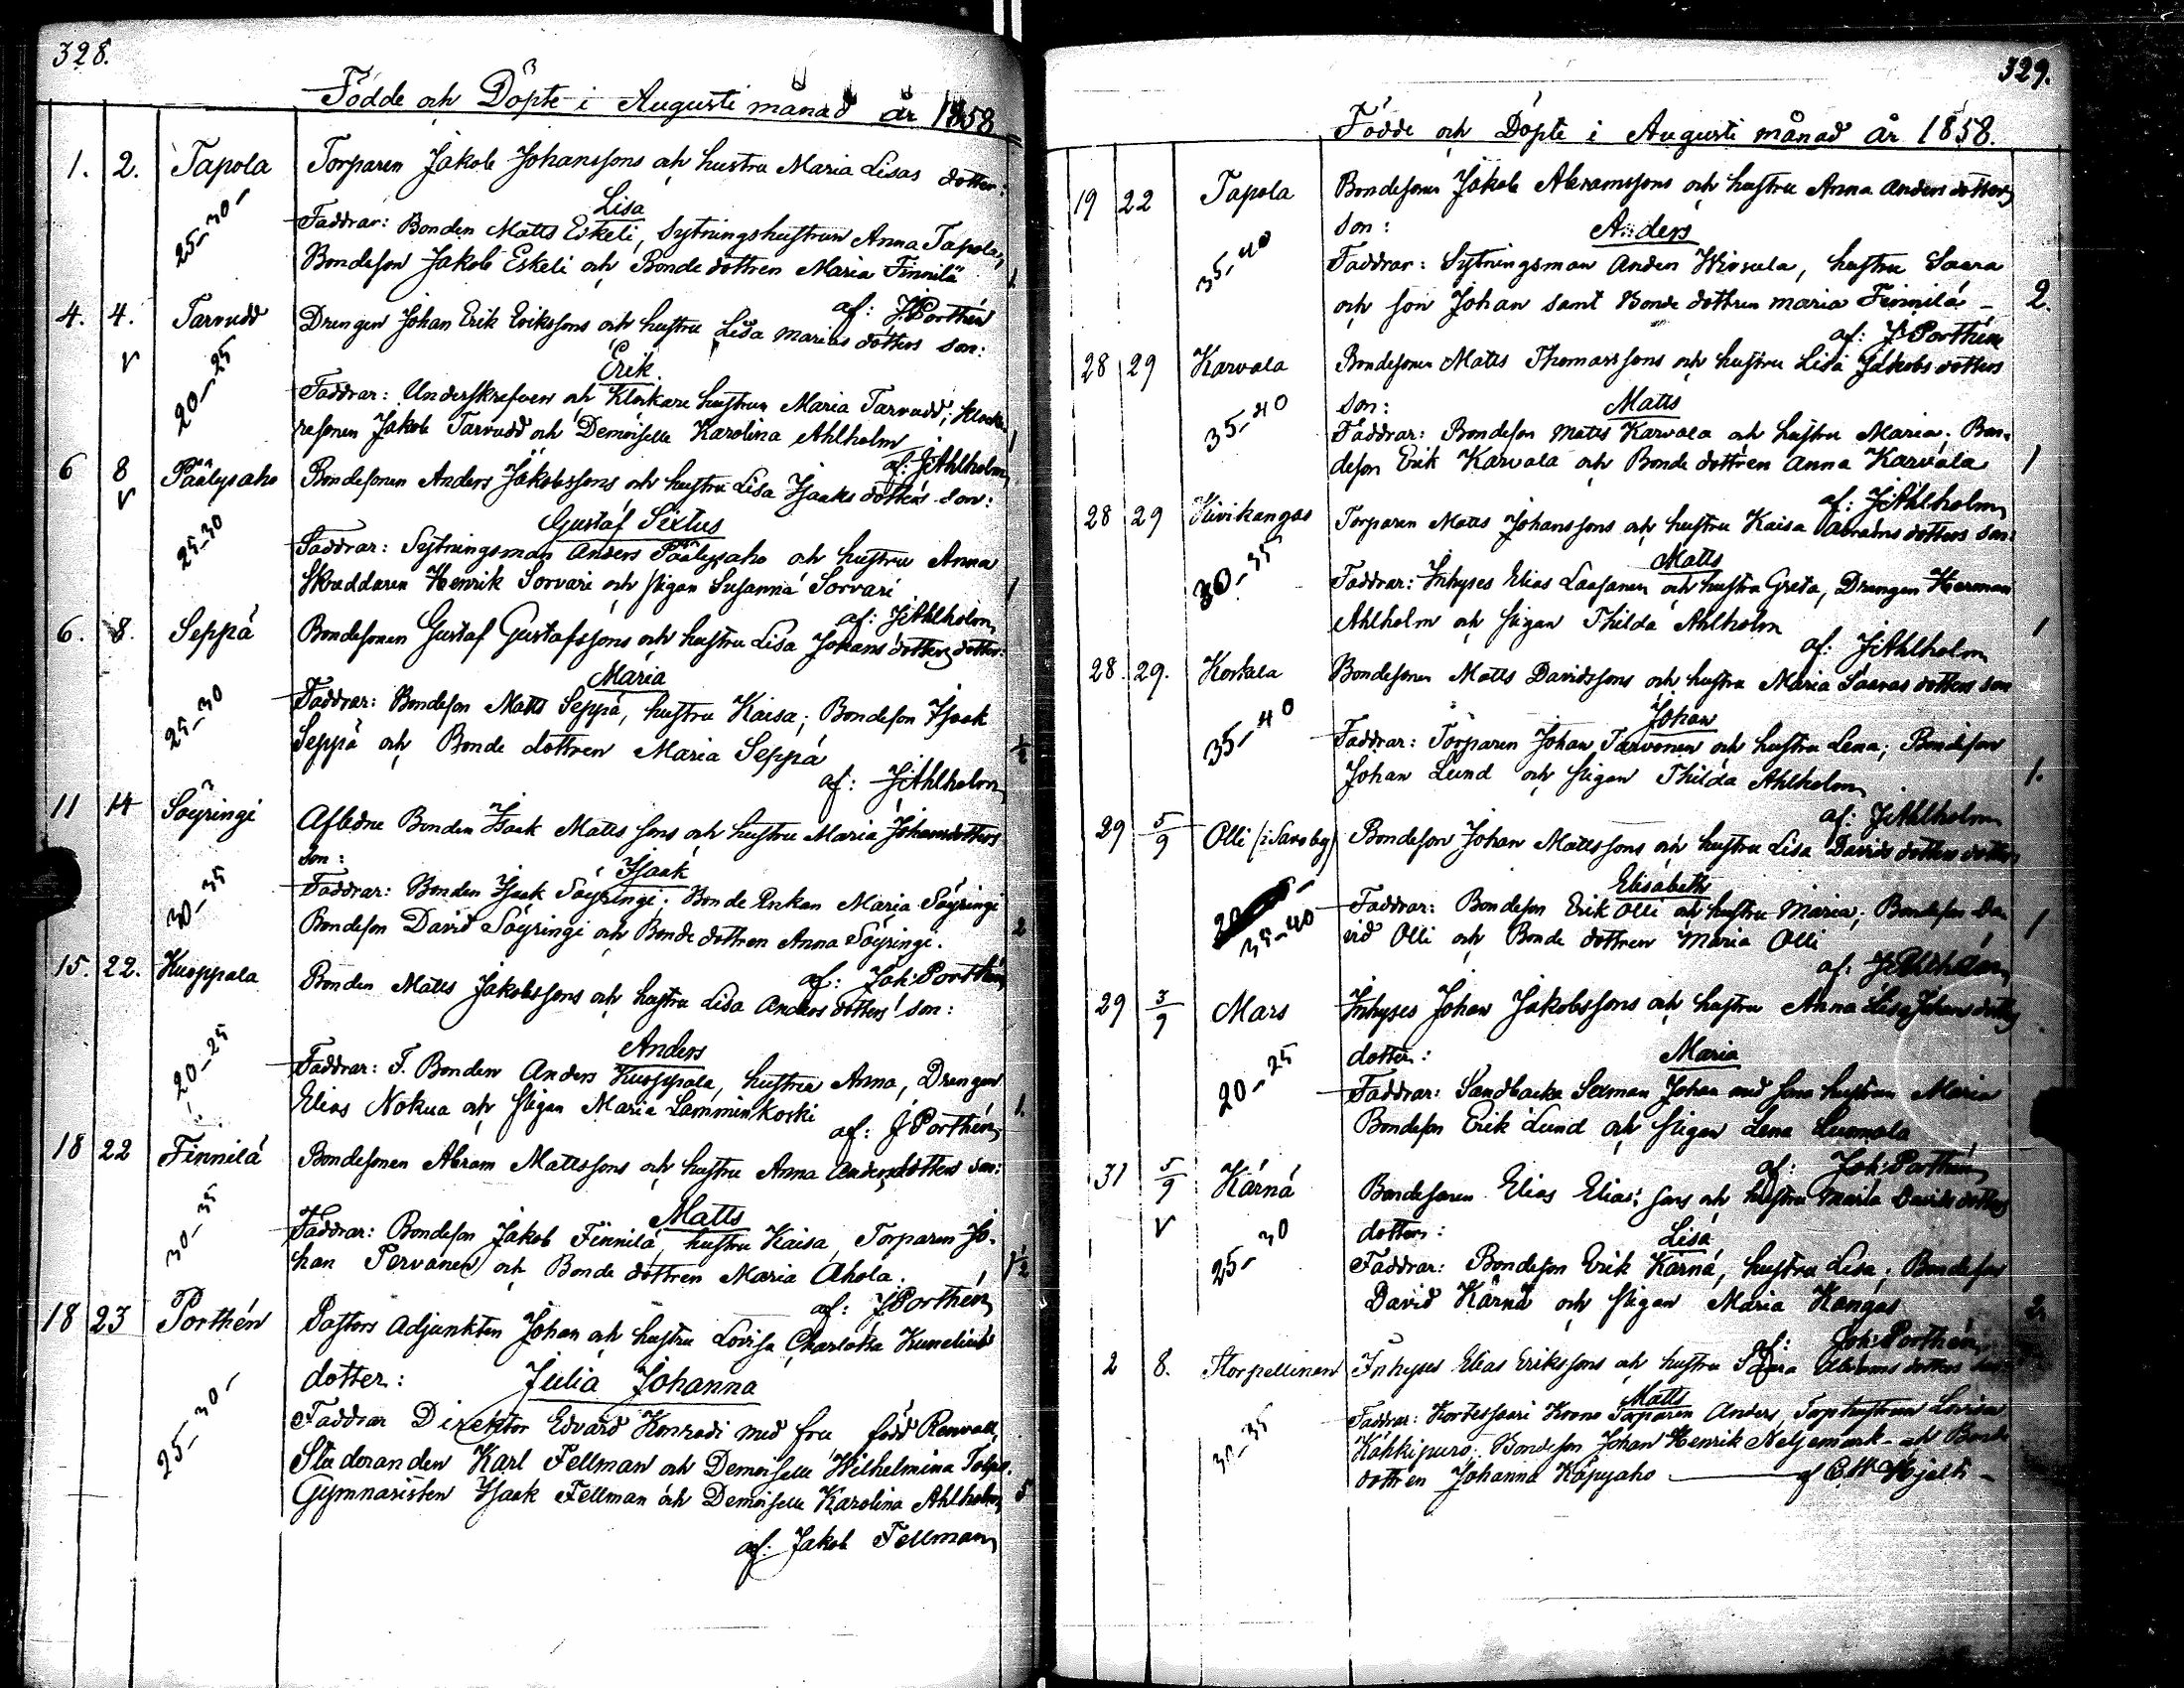 328.
Födde och Döpte i Augusti månad år 1858
1. 2. Tapola Torparen Jakob Johanssons och hustru Maria Lisas dotter:
25-30- Lisa
Faddrar: Bonden Matts Eskeli, Sytningshustrun Anna Tapola,
Bondeson Jakob Eskeli och Bonde dottren Maria Finnilä 1
af: J Porthén
4. 4. Tarvudd Drengen Johan Erik Erikssons och hustru Lisa Marias dotters son:
V 20-25 Erik.
Faddrar: Underskrefven och Klockare hustrun Maria Tarvudd; Klocka-
resonen Jakob Tarvudd och Demoiselle Karolina Ahlholm 1
af: J Ahlholm
6 8 Päälysaho Bondesonen Anders Jakobssons och hustru Lisa Isaaks dotters son:
V 25-30 Gustaf Sixtus
Faddrar: Sytningsman Anders Päälysaho och hustru Anna
Skraddaren Henrik Sorvari och pigan Susanna Sorvari 1
af: J Ahlholm
6. 8. Seppä Bondesonen Gustaf Gustafssons och hustru Lisa Johans dotters dotter:
Maria
25-30 Faddrar: Bondeson Matts Seppä, hustru Kaisa; Bondeson Isaak
Seppä och Bonde dottren Maria Seppä ½
af: J Ahlholm
11 14 Söyringi Aflidne Bonden Isaak Matts sons och hustru Maria Johansdotters
son: Isaak
30-35 Faddrar: Bonden Isaak Söyringi; Bonde Enkan Maria Söyringi
Bondeson David Söyringi och Bonde dottren Anna Söyringi. 2
af: Joh: Porthén
15. 22. Kuoppala Bonden Matts Jakobssons och hustru Lisa Anders dotters son:
20-25 Anders
Faddrar: F. Bonden Anders Kuoppala, hustru Anna, Drengen
Elias Nokua och pigan Maria Lamminkoski 1.
af: J Porthén
18 22 Finnilä Bondesonen Abram Mattssons och hustru Anna Andersdotters son:
30-35 Matts
Faddrar: Bondeson Jakob Finnilä, hustru Kaisa, Torparen Jo-
han Pervanen och Bonde dottren Maria Ahola. 1½
af: J Porthén
18 23 Porthén Pastors Adjunkten Johan och hustru Lovisa Charlotta Kunelius
dotter: Julia Johanna
25-30- Faddrar Direktor Edvard Konradi med fru född Renvall,
Studeranden Karl Fellman och Demoiselle Wilhelmina Tolpo.
Gymnasisten Isaak Fellman och Demoiselle Karolina Ahlholm 5
af: Jakob Fellman
329.
Födde och Döpte i Augusti månad år 1858.
19 22 Tapola Bondesonen Jakob Abramssons och hustru Anna Anders dotters
son: Anders
35-40 Faddrar: Sytningsman Anders Wirsula, hustru Saara
och son Johan samt Bonde dottren Maria Finnilä - 2.
af: J Porthén
28 29 Karvala Bondesonen Matts Thomassons och hustru Lisa Jakobs dotters
son: Matts
35-40 Faddrar: Bondeson Matts Karvala och hustru Maria; Bon-
deson Erik Karvala och Bonde dottren Anna Karvala 1
af: J Ahlholm
28 29 Kivikangas Torparen Matts Johanssons och hustru Kaisa Abrams dotters son:
Matts
30-35 Faddrar: Inhyses Elias Laasanen och hustru Greta, Drengen Herman
Ahlholm och pigan Thilda Ahlholm 1
af: J Ahlholm
28. 29. Korkala Bondesonen Matts Davidssons och hustru Maria Saaras dotters son
Johan
35-40 Faddrar: Torparen Johan Tarvonen och hustru Lena; Bondeson
Johan Lund och pigan Thilda Ahlholm 1.
af: J Ahlholm
29 5/9 Olli (i Savoby) Bondeson Johan Mattssons och hustru Lisa Davids dotters dotter
Elisabeth
35-40 Faddrar: Bondeson Erik Olli och hustru Maria; Bondeson Da-
vid Olli och Bonde dottren Maria Olli 1
af: J Ahlholm
29 5/9 Mars Inhyses Johan Jakobssons och hustru Anna Lisa Johans dotters
dotter: Maria
20-25 Faddrar: Sandbacka Sexman Johan med sona hustrun Maria
Bondeson Erik Lund och pigan Lena Luomala
af: Joh: Porthén
31 5/9 Kärnä Bondesonen Elias Elias: sons och hustru Maria Davids dotters
V dotter: Lisa
25-30 Faddrar: Bondeson Erik Kärnä, hustru Lisa; Bondeson
David Kärnä och pigan Maria Kangas 2.
af: Joh: Porthén
2 8. Storpellinen Inhyses Elias Erikssons och hustru Saara Abrams dotters
Matts
30-35 Faddrar: Kortessaari Krono Torparen Anders, Torphustrun Lovisa
Kähkipuro; Bondeson Johan Henrik Neljemark och Bonde
dottren Johanna Käpyaho af C.W Hjelt